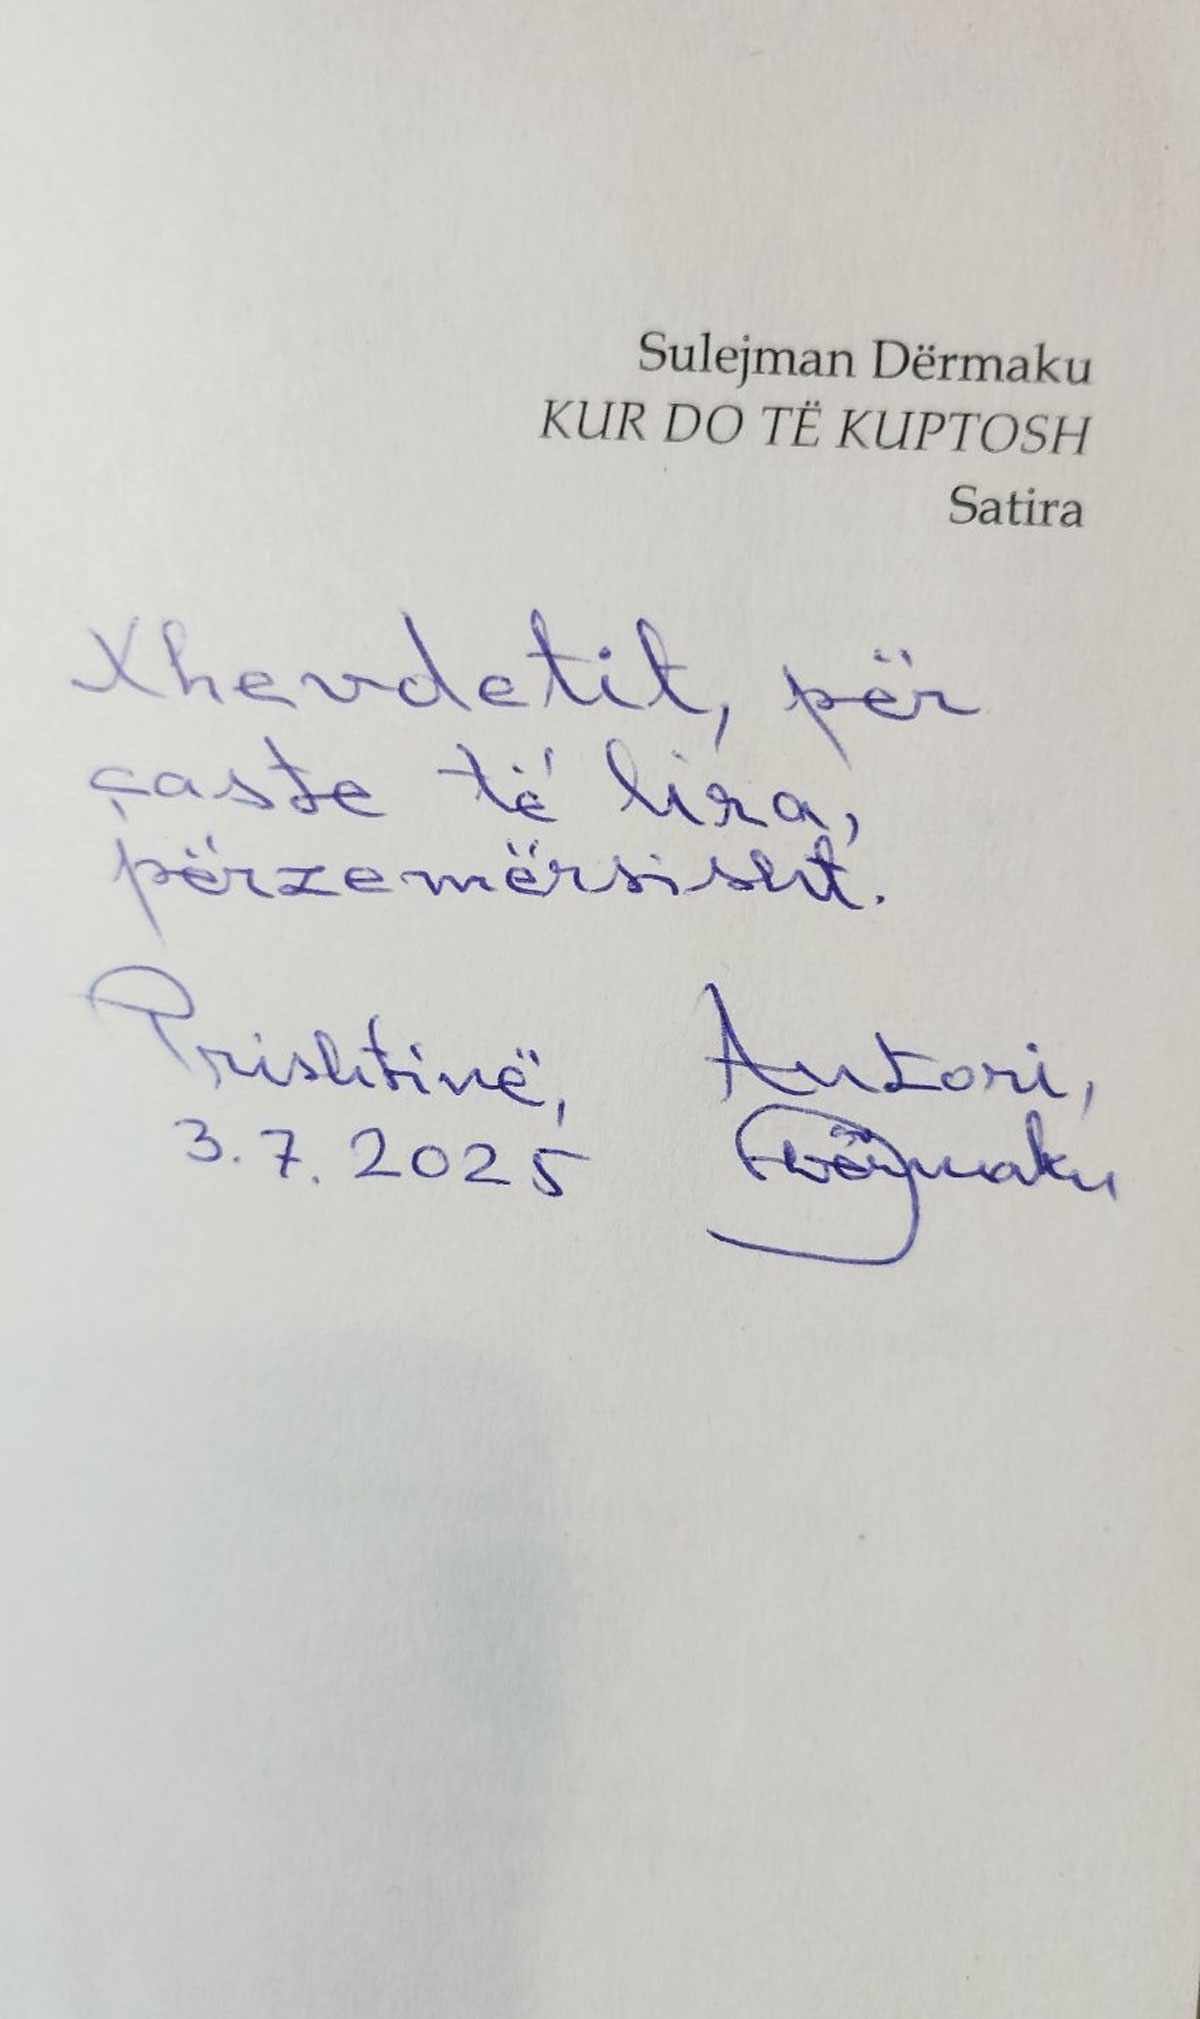 Sulejman Dërmaku
KUR DO TË KUPTOSH
Satira
Xhevdetit, për
çaste të lira,
përzemërsisht.
Prishtinë, Autori,
3.7.2025 Dërmaku